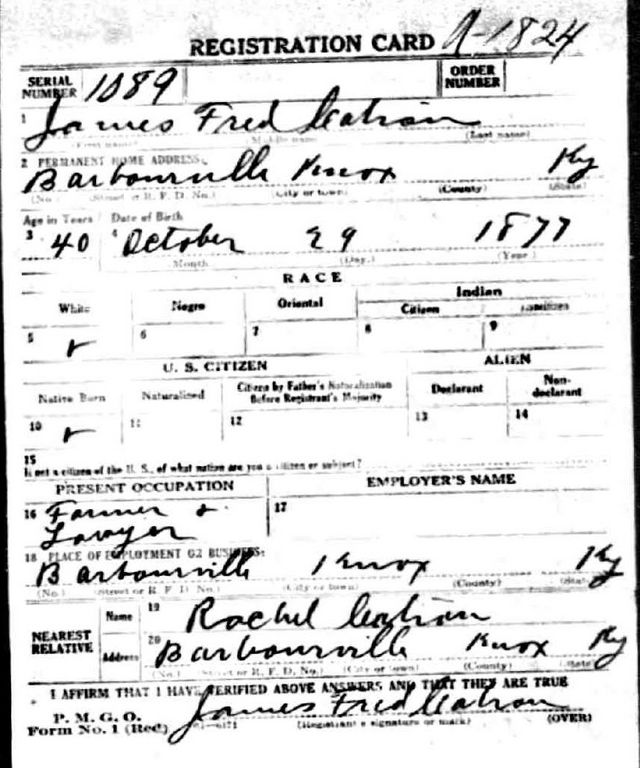 REGISTRATION CARD A-1824
SERIAL NUMBER 1089 ORDER NUMBER
1 James Fred Catron
(First name) (Middle name) (Last name)
2 PERMANENT HOME ADDRESS:
Barbourville Knox Ky
(No.) (Street or R. F. D. No.) (City or town) (County) (State)
Age in Years Date of Birth
3 40 4 October 29 1877
Month (Day.) (Year)
RACE
White Negro Oriental Indian
Citizen
5 6 7 8 9
U. S. CITIZEN ALIEN
Native Born Naturalized Citizen by Father's Naturalization Before Registrant's Majority Declarant Non-declarant
10 11 12 13 14
15
If not a citizen of the U. S., of what nation are you a citizen or subject?
PRESENT OCCUPATION EMPLOYER'S NAME
16 Farmer & 17
Lawyer
18 PLACE OF EMPLOYMENT OR BUSINESS:
Barbourville Knox Ky
(No.) (Street or R. F. D. No.) (City or town) (County) (State)
NEAREST RELATIVE Name 19 Rachel Catron
Address 20 Barbourville Knox Ky
(No.) (Street or R. F. D. No.) (City or town) (County) (State)
I AFFIRM THAT I HAVE VERIFIED ABOVE ANSWERS AND THAT THEY ARE TRUE
P. M. G. O.
Form No. 1 (Red) James Fred Catron
(Registrant's signature or mark) (OVER)